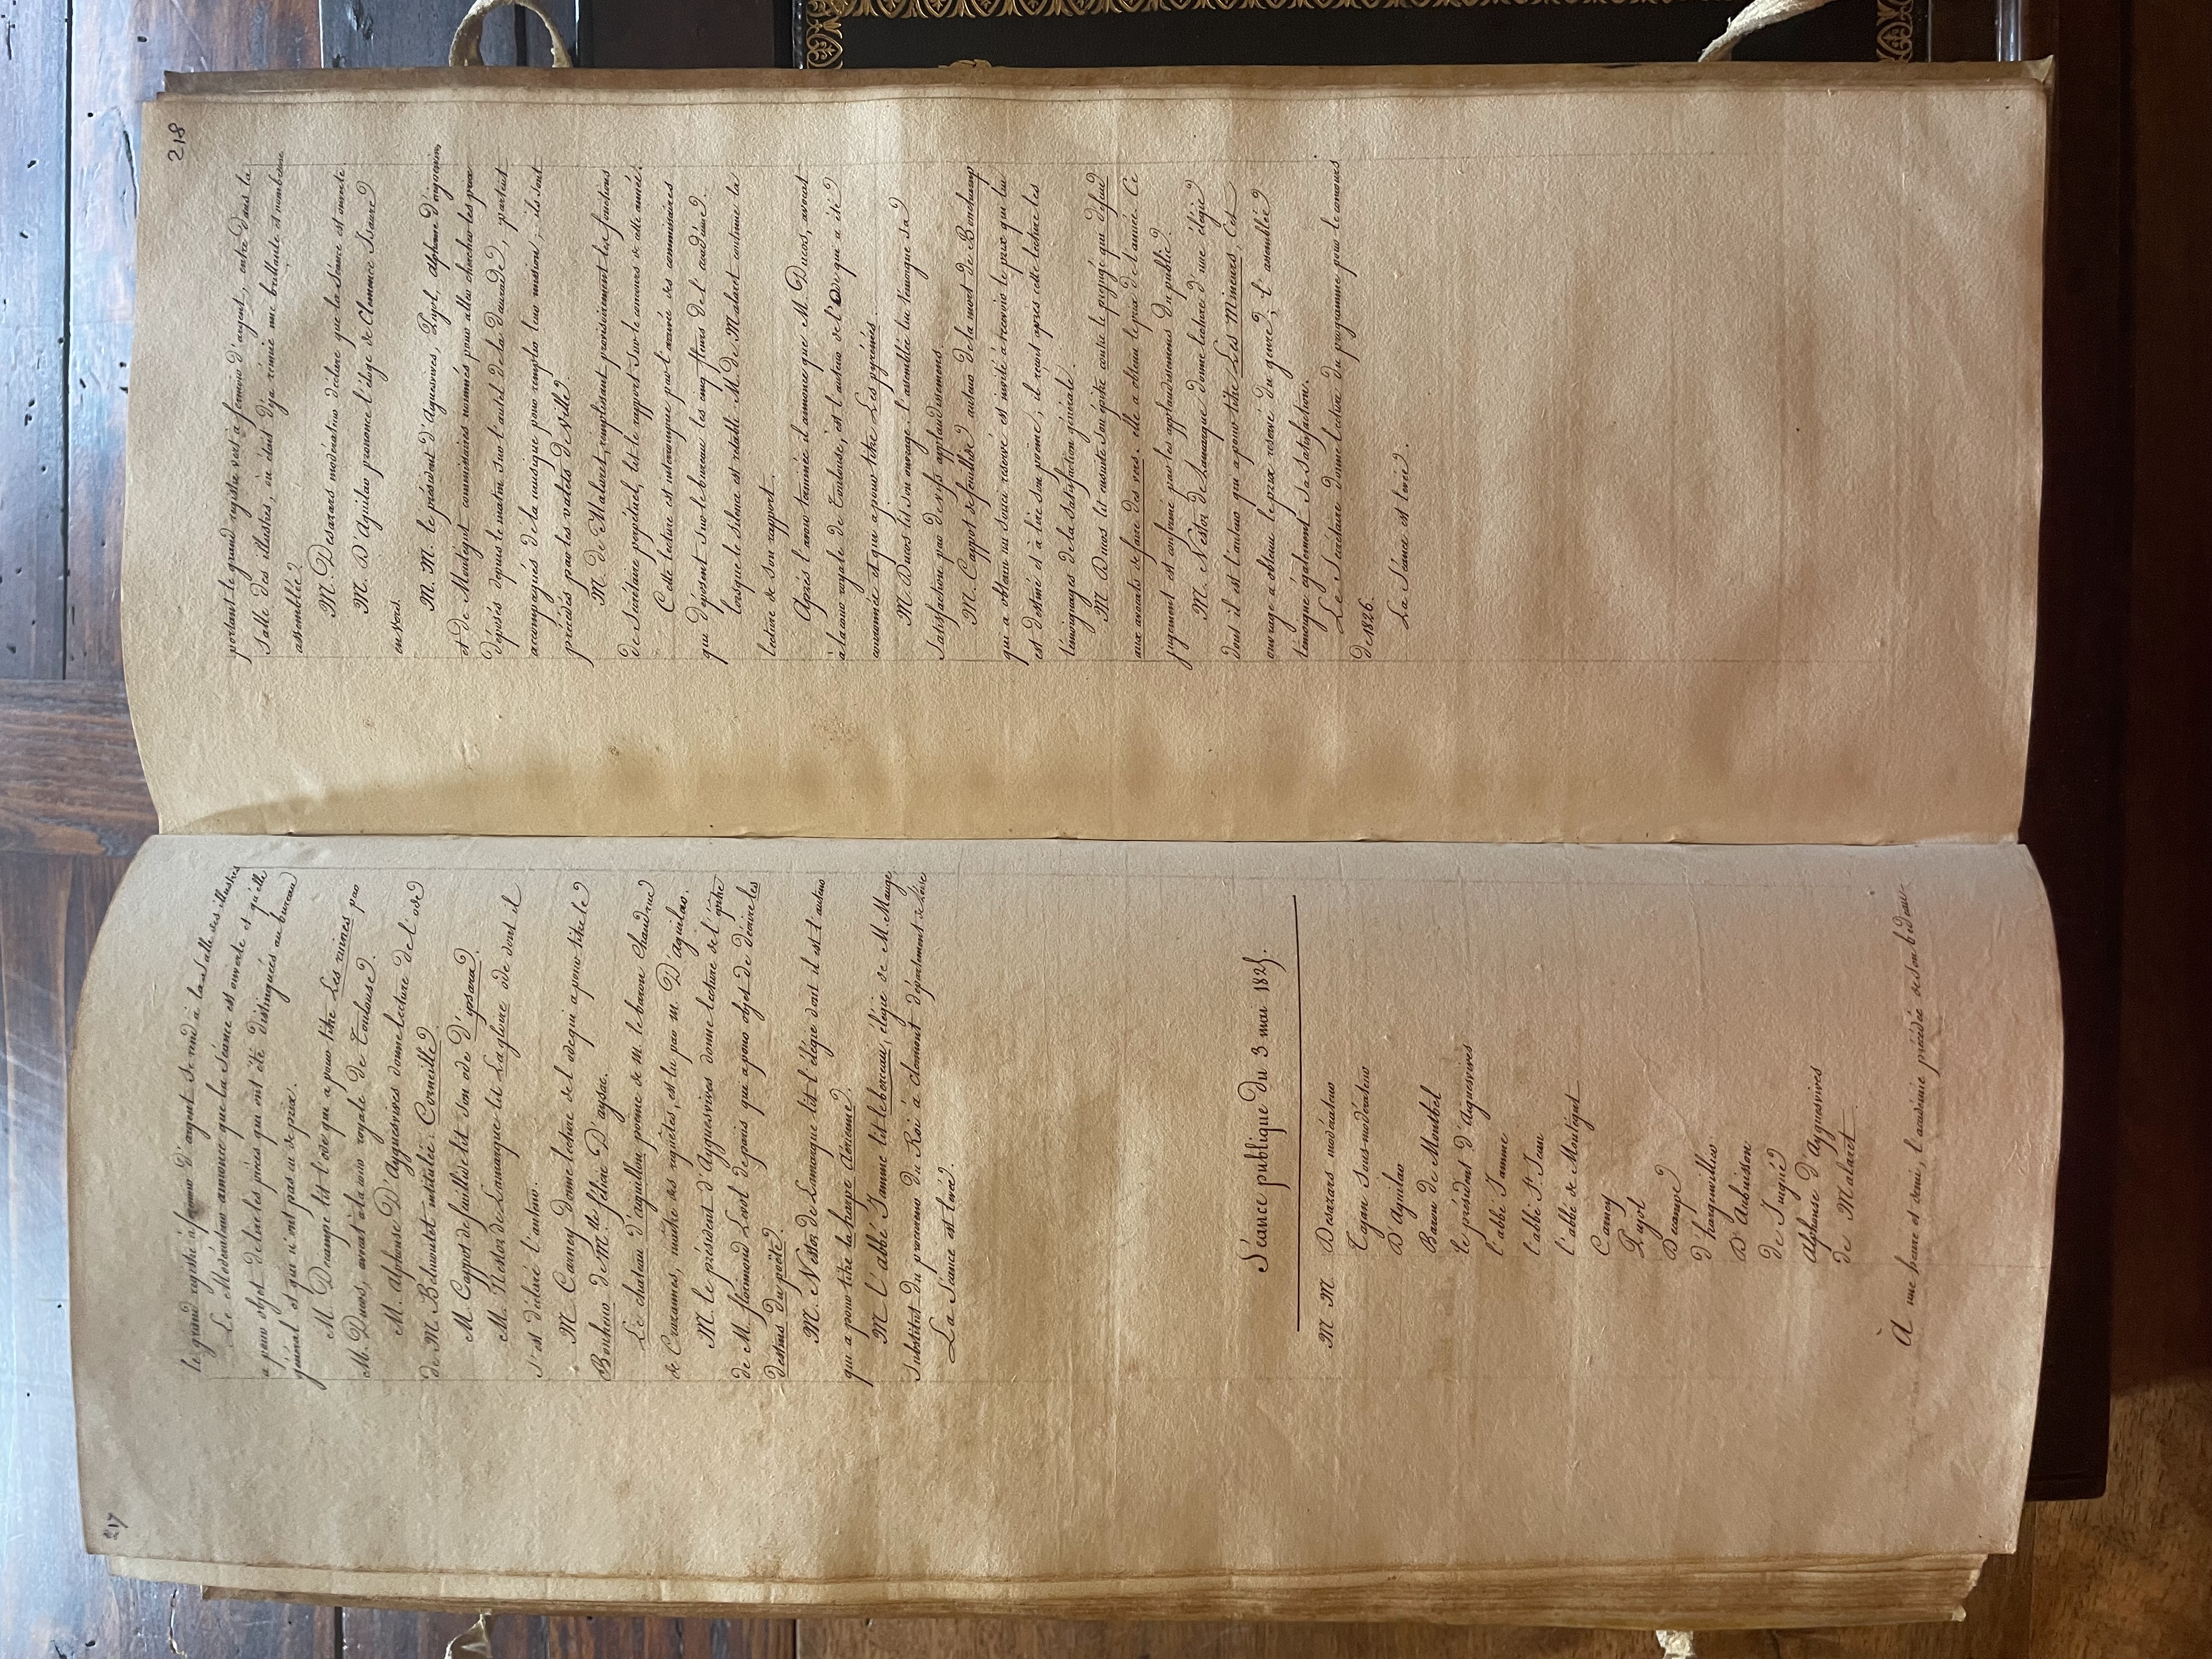 217
le grand registre à fermoir d'argent se rend à la salle des illustres
Le Modérateur annonce que la séance est ouverte et qu'elle
a pour objet de lire les pièces qui ont été distinguées au bureau
général et qui n'ont pas eu de prix.
M. Decampe lit l'ode qui a pour titre Les ruines par
M. Ducos, avocat à la cour royale de Toulouse.
M. Alphonse D'Ayguesvives donne lecture de l'ode
de M. Belmontet intitulée: Corneille.
M. Cappot de feuillide lit son ode D'ipsara.
M. Nestor de Lamarque lit La gloire ode dont il
s'est déclaré l'auteur.
M. Carney donne lecture de l'ode qui a pour titre le
Bonheur de M.lle félicie D'aysac.
Le chateau d'aiguillon poeme de M. le baron Chaudruc
de Crazannes, maître des requêtes, est lu par M. D'aguilar.
M. le président d'Ayguesvives donne lecture de l'épitre
de M. florimond Levol depuis qui a pour objet de décrire les
destins du poëte.
M. Nestor de Lamarque lit l'élégie dont il est l'auteur
qui a pour titre la harpe Aérienne.
M l'abbé Jamme lit le berceau, élégie de M. Mauge,
Substitut du procureur du Roi à clermont département de L'oise
La Séance est levée.
Séance publique du 3 mai 1825.
M M. Desazars modérateur
Tajan Sous-modérateur
D'Aguilar
Baron de Montbel
le président d'Aiguesvives
l'abbé Jamme
l'abbé St. Jean
l'abbé de Montégut
Carney
Pujol
Decampe
d'hargenvillier
D'Aubuisson
de Puqué
Alphonse d'Ayguesvives
de Malaret
À une heure et demie, l'académie précédée de son bedeau
218
portant le grand registre vert à fermoir d'argent, entre dans la
Salle des illustres, où était déja réunie une brillante et nombreuse
assemblée.
M. Desazars modérateur déclare que la Séance est ouverte.
M. D'Aguilar prononce l'éloge de Clemence Isaure
en vers.
M. M. le président d'Aguesvives, Pujol, Alphonse d'ayguesvives
et de Montegut commissaires nommés pour aller chercher les prix
déposés depuis le matin sur l'autel de la daurade, partent
accompagnés de la musique pour remplir leur mission; ils sont
précédés par les valets de ville.
M. de Malaret, remplissant provisoirement les fonctions
de Secrétaire perpétuel, lit le rapport sur le concours de cette année.
Cette lecture est interrompue par l'arrivée des commissaires
qui déposent sur le bureau les cinq fleurs de l'académie.
lorsque le silence est rétabli M. de Malaret continue la
lecture de son rapport.
Après l'avoir terminée il annonce que M. Ducos, avocat
à la cour royale de Toulouse, est l'auteur de l'Ode qui a été
couronnée et qui a pour titre Les pyrénées.
M. Ducos lit son ouvrage. l'assemblée lui témoigne sa
satisfaction par de vifs applaudissements.
M. Cappot de feuillide auteur de la mort de Bonchamp
qui a obtenu un souci réservé est invité à recevoir le prix qui lui
est destiné et à lire son poème; il reçoit après cette lecture les
témoignages de la satisfaction générale.
M. Ducos lit ensuite son épître contre le préjugé qui défend
aux avocats de faire des vers. elle a obtenu le prix de l'année. Ce
jugement est confirmé par les applaudissemens du public.
M. Nestor de Lamarque donne lecture d'une élégie
dont il est l'auteur qui a pour titre Les Mineurs. Cet
ouvrage a obtenu le prix réservé du genre; l'assemblée
témoigne également sa satisfaction.
Le Secrétaire donne lecture du programme pour le concours
de 1826.
La Séance est levée.